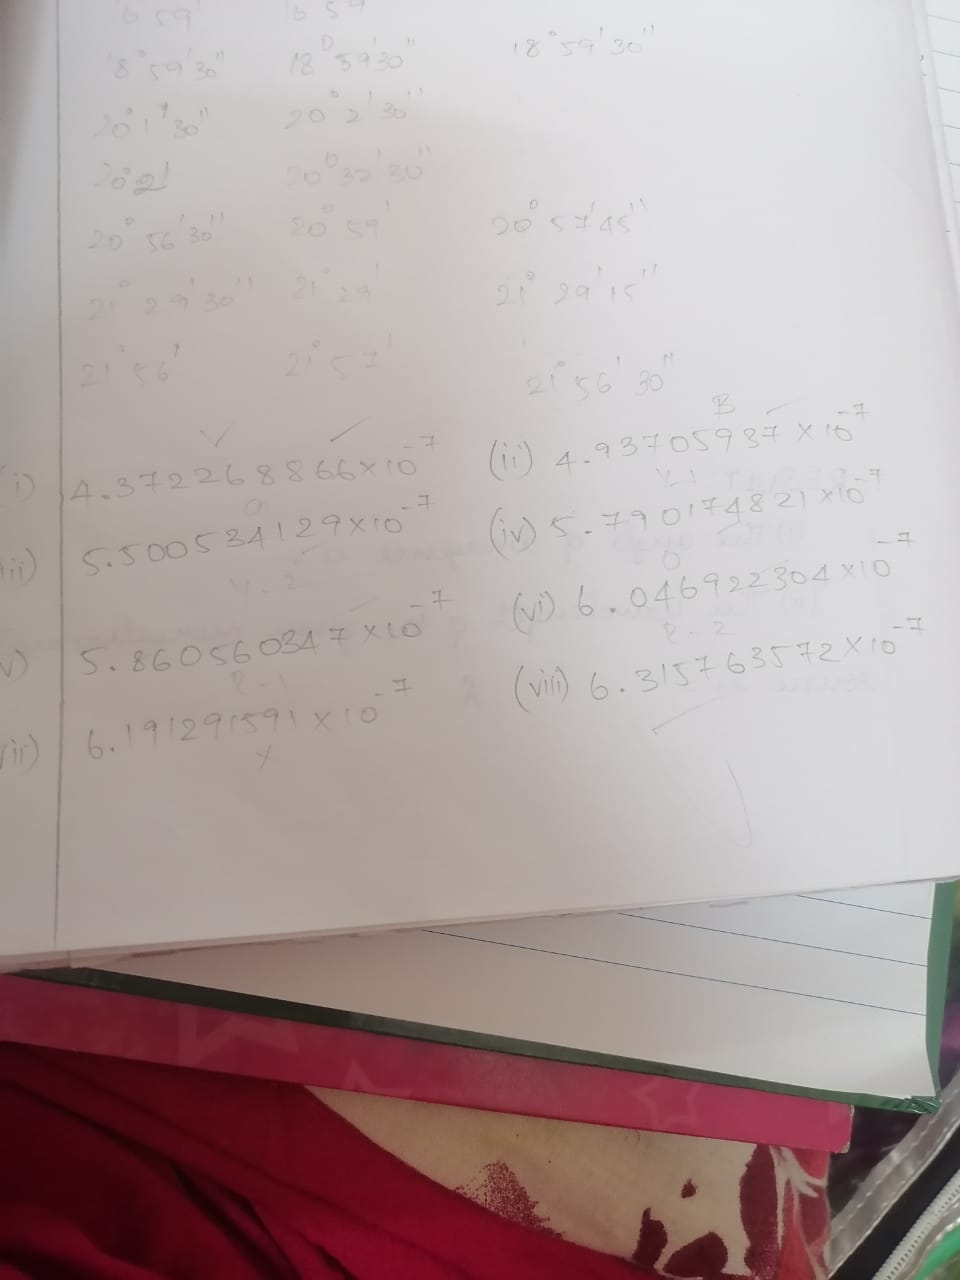 16 59' 16 59
18° 59' 30" 18° 59' 30" 18° 59' 30"
20° 1' 30" 20° 2' 30"
20° 2' 20° 32' 30"
20° 56' 30" 20° 59' 20° 57' 45"
21° 29' 30" 21° 29' 21° 29' 15"
21° 56' 21° 57' 21° 56' 30"
V B
i) 4.372268866×10⁻⁷ (ii) 4.93705937×10⁻⁷
G Y-1
iii) 5.500534129×10⁻⁷ (iv) 5.790174821×10⁻⁷
Y-2 O
v) 5.860560347×10⁻⁷ (vi) 6.046922304×10⁻⁷
R-1 R-2
vii) 6.191291591×10⁻⁷ (viii) 6.315763572×10⁻⁷